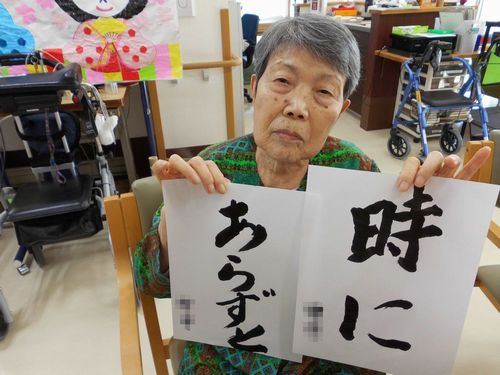 時に
あらずと